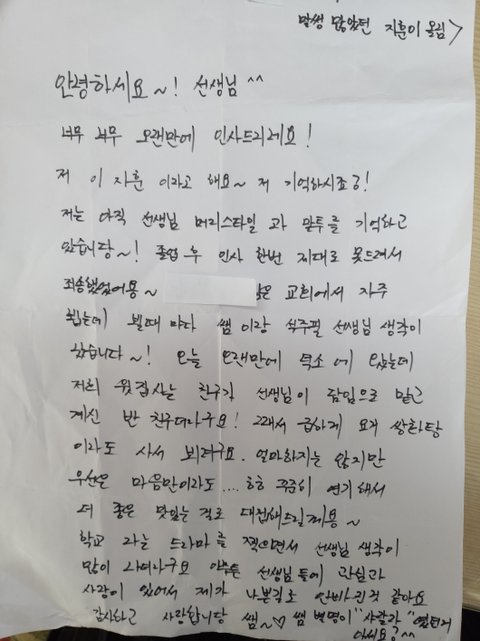 말썽 많았던 지훈이 올림>
안녕하세요~! 선생님^^
너무 너무 오랜만에 인사드리네요!
저 이 지훈 이라고 해요~ 저 기억하시죠?!
저는 아직 선생님 머리스타일 과 말투를 기억하고
있습니당~! 졸업 후 인사 한번 제대로 못드려서
죄송했었어용~ 교회에서 자주
뵙는데 뵐때 마다 쌤 이랑 석주필 선생님 생각이
났습니다~! 오늘 오랜만에 덕소 에 왔는데
저희 윗집사는 친구가 선생님이 담임으로 맡고
계신 반 친구더라구요! 그래서 급하게 요거 쌍화탕
이라도 사서 보내구요. 얼마하지는 않지만
우선은 마음만이라도.... ㅎㅎ 꾸준히 연기 해서
더 좋은 맛있는 걸로 대접해드릴께용~
학교 라는 드라마 를 찍으면서 선생님 생각이
많이 나더라구요 아무튼 선생님 들에 관심과
사랑이 있어서 제가 나쁜길로 안빠진 것 같아요
감사하고 사랑합니당 쌤~♡ 쌤 별명이 "사갈라" 였던거
아세요?^^